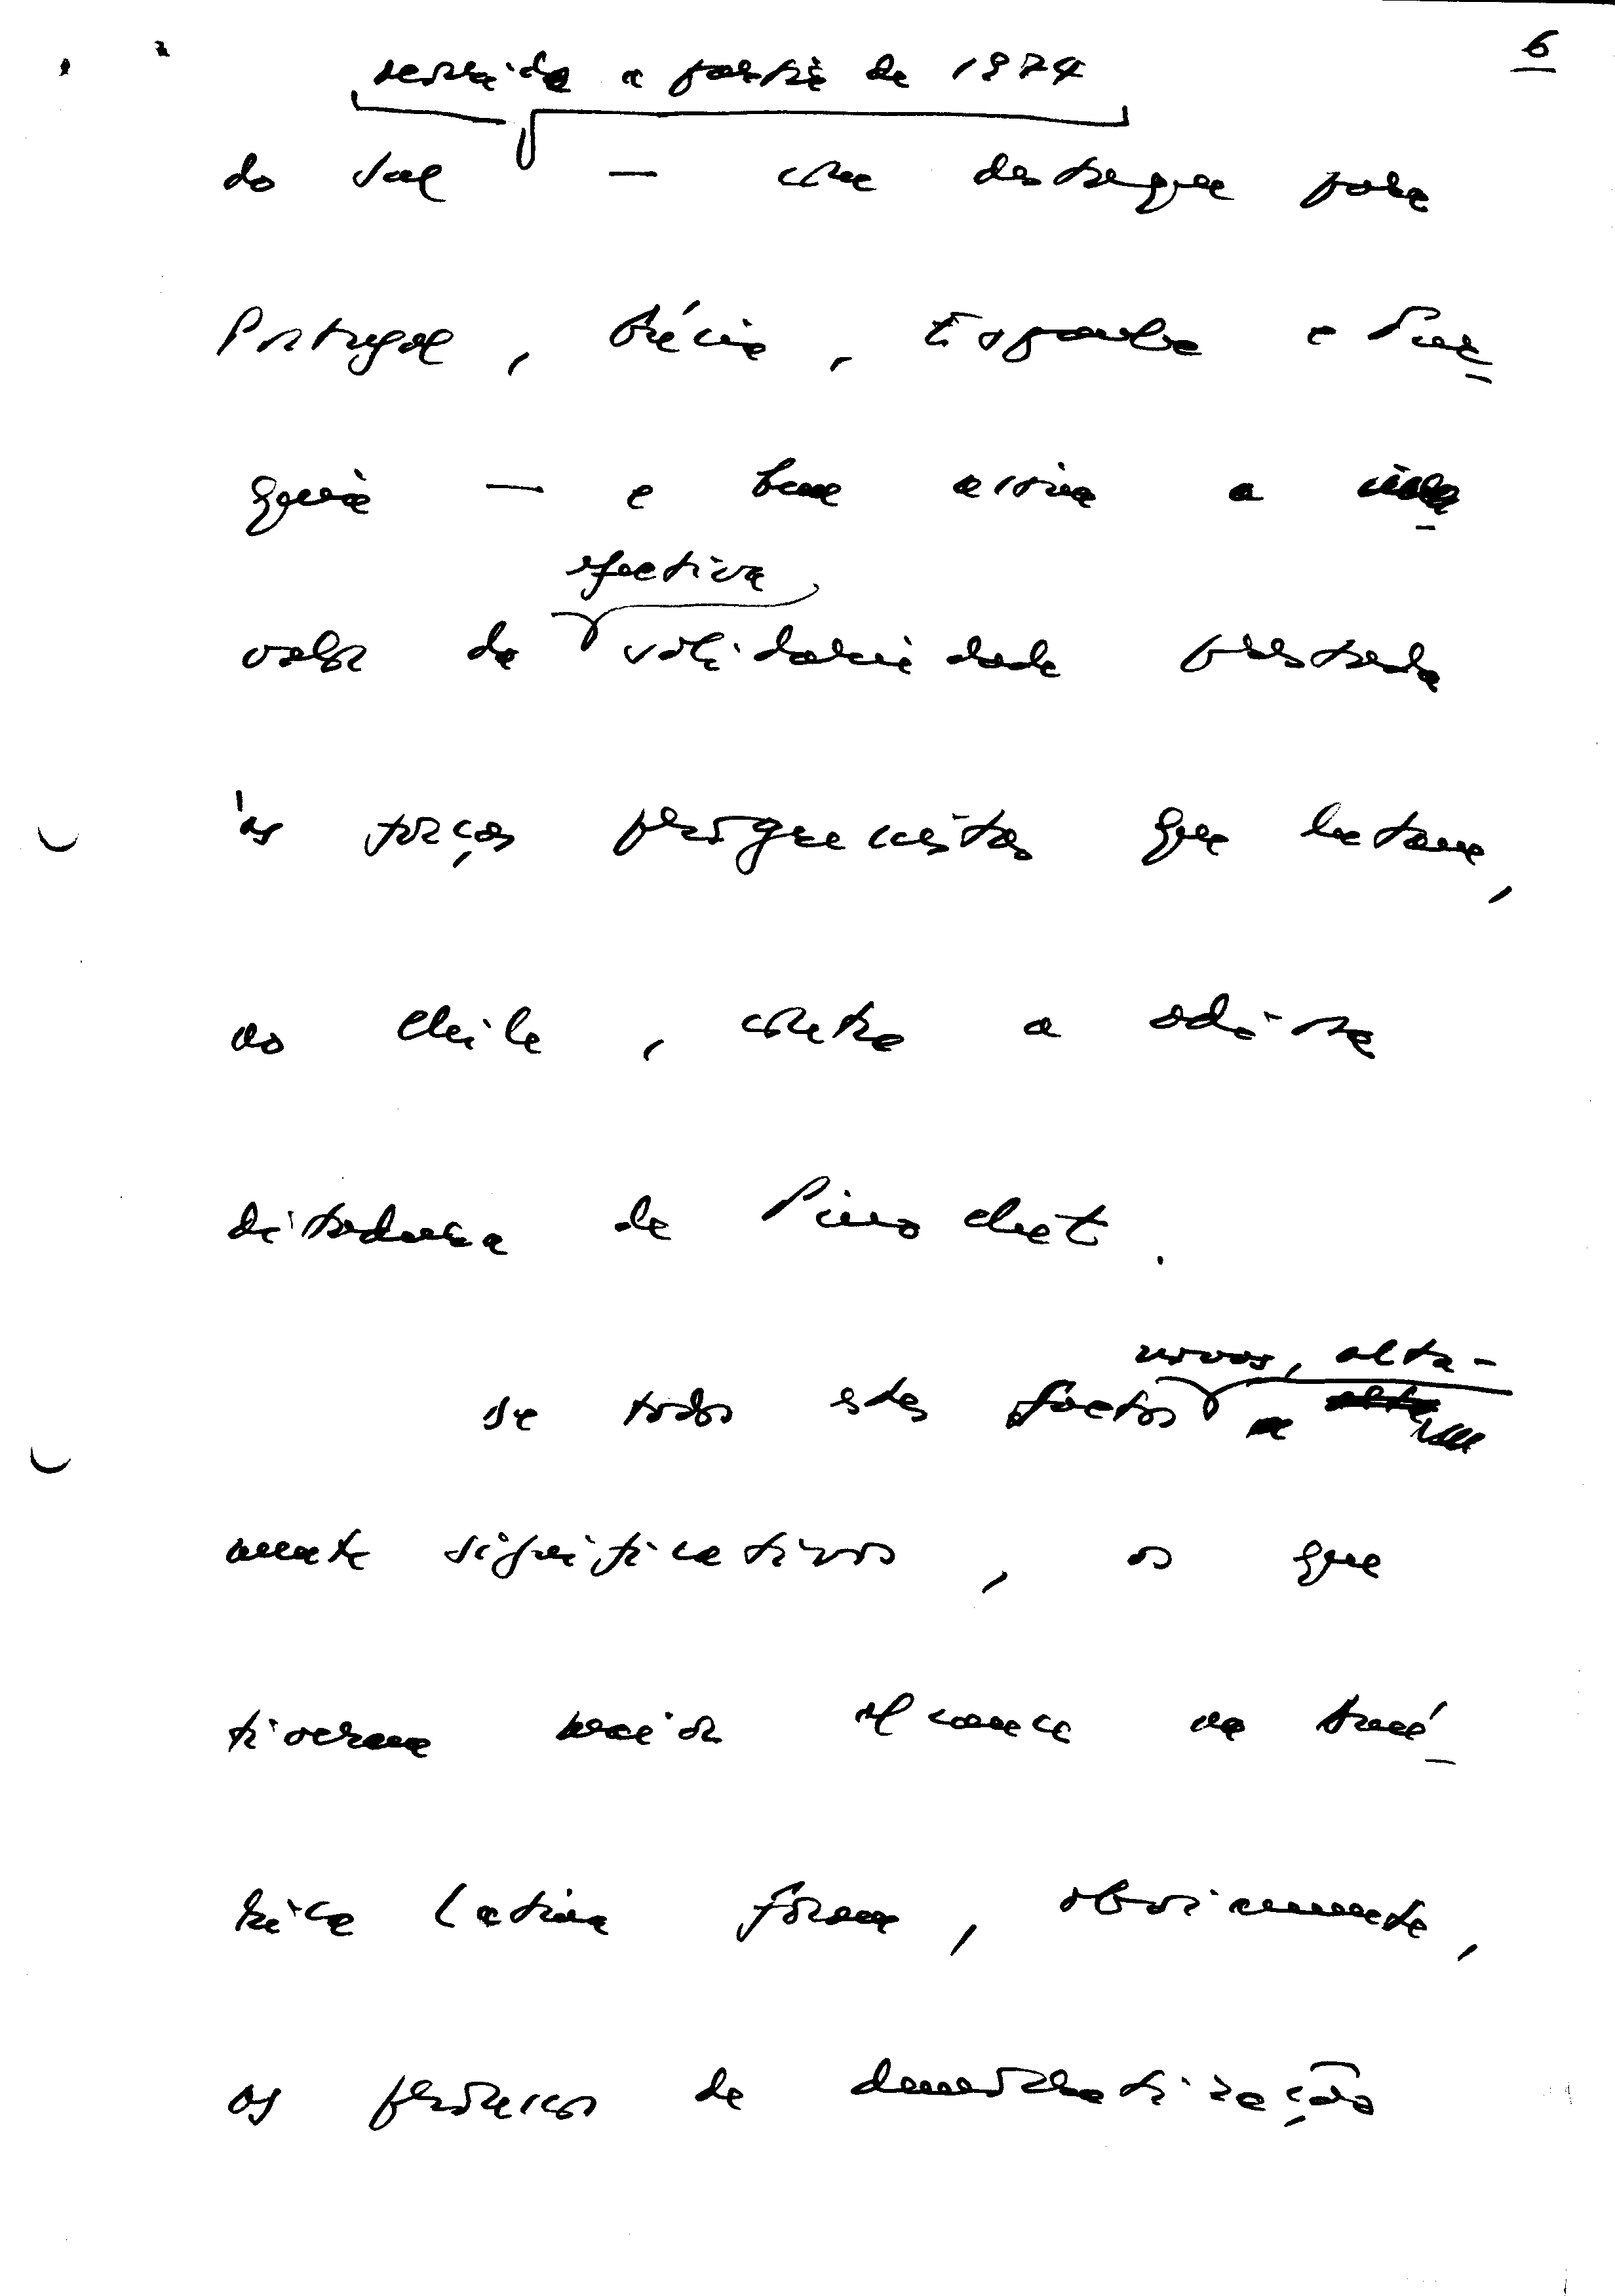 6
a partir de 1974
do Sul — com destaque para
Portugal, Grécia, Espanha e Tur-
quia — e bem assim a
efectiva
valor da solidariedade prestada
às forças progressistas que lutam,
no Chile, contra a odiosa
ditadura de Pinochet.
novos, alta-
De todos estes factos
mente significativos, os que
tiveram maior alcance na Amé-
rica Latina foram, obviamente,
os processos de democratização